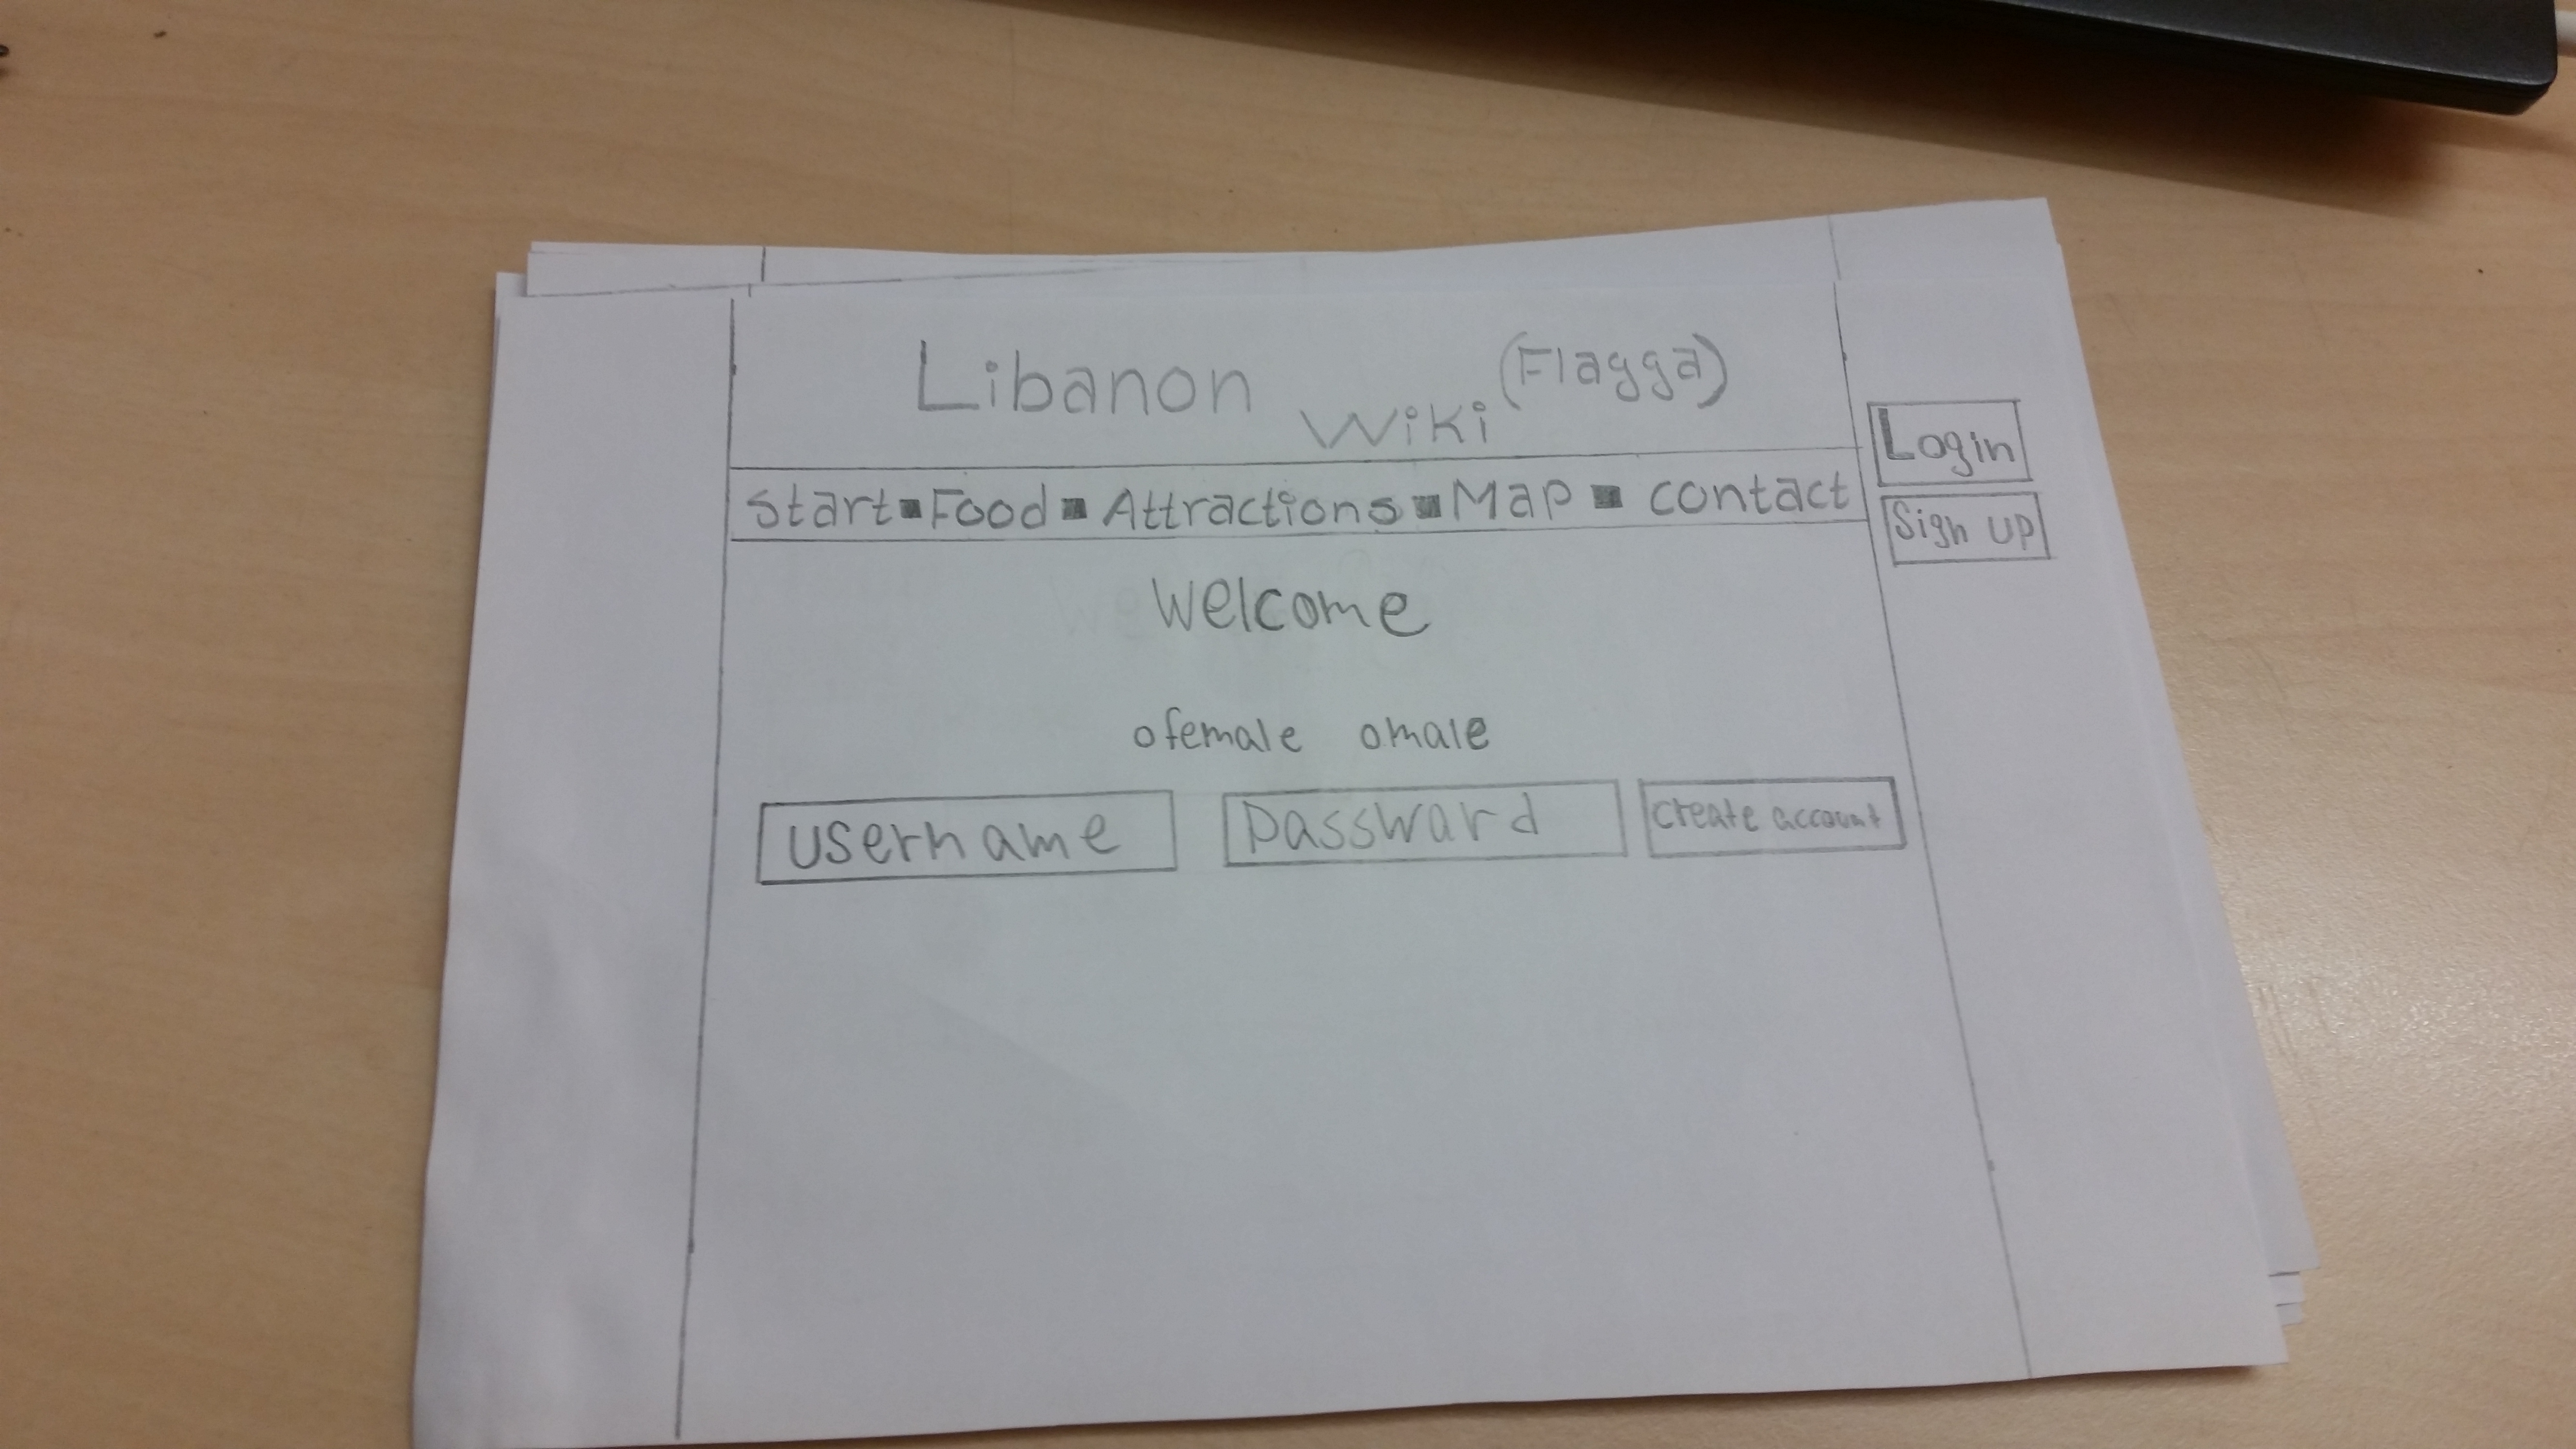 Libanon (Flagga)
Wiki
Login
start▪Food▪Attractions▪Map▪contact
Sign up
Welcome
o female o male
username password create account